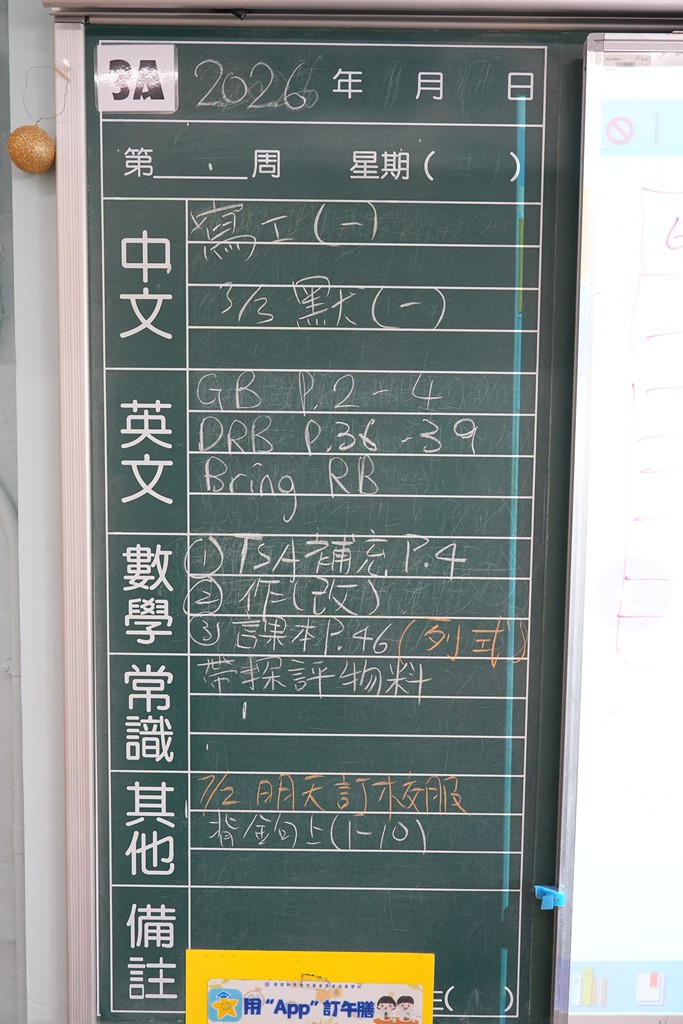 3A 2026 年 月 日
第 周 星期( )
中文
寫工(一)
3/3 默(一)
英文
GB P.2-4
DRB P.36-39
Bring RB
數學
① TSA補充P.4
② 作(改)
③ 課本P.46(列式)
常識
帶探評物料
其他
7/2 明天訂校服
背金句上(1-10)
備註
用“App”訂午膳